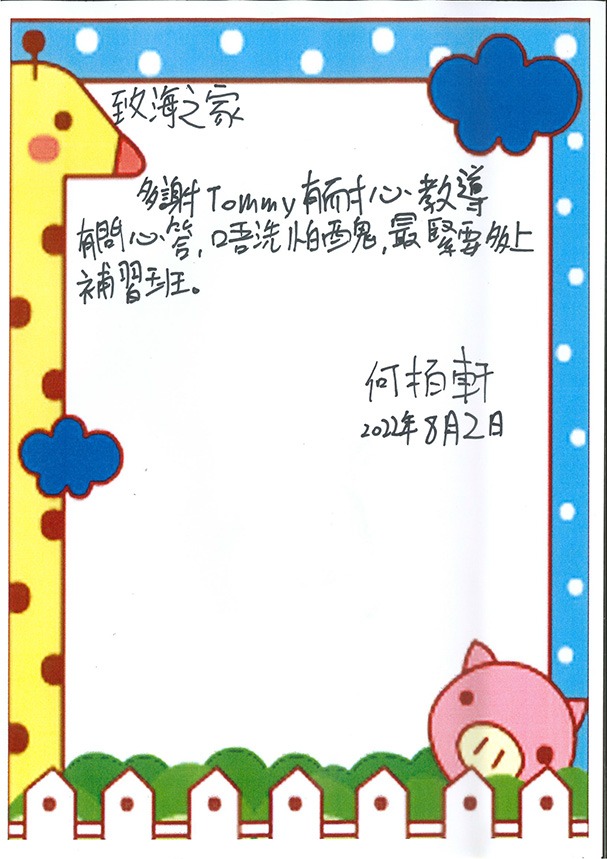 致海之家
多謝Tommy有耐心教導
有問心答,唔洗怕醜,最緊要多上
補習班。
何栢軒
2022年8月2日